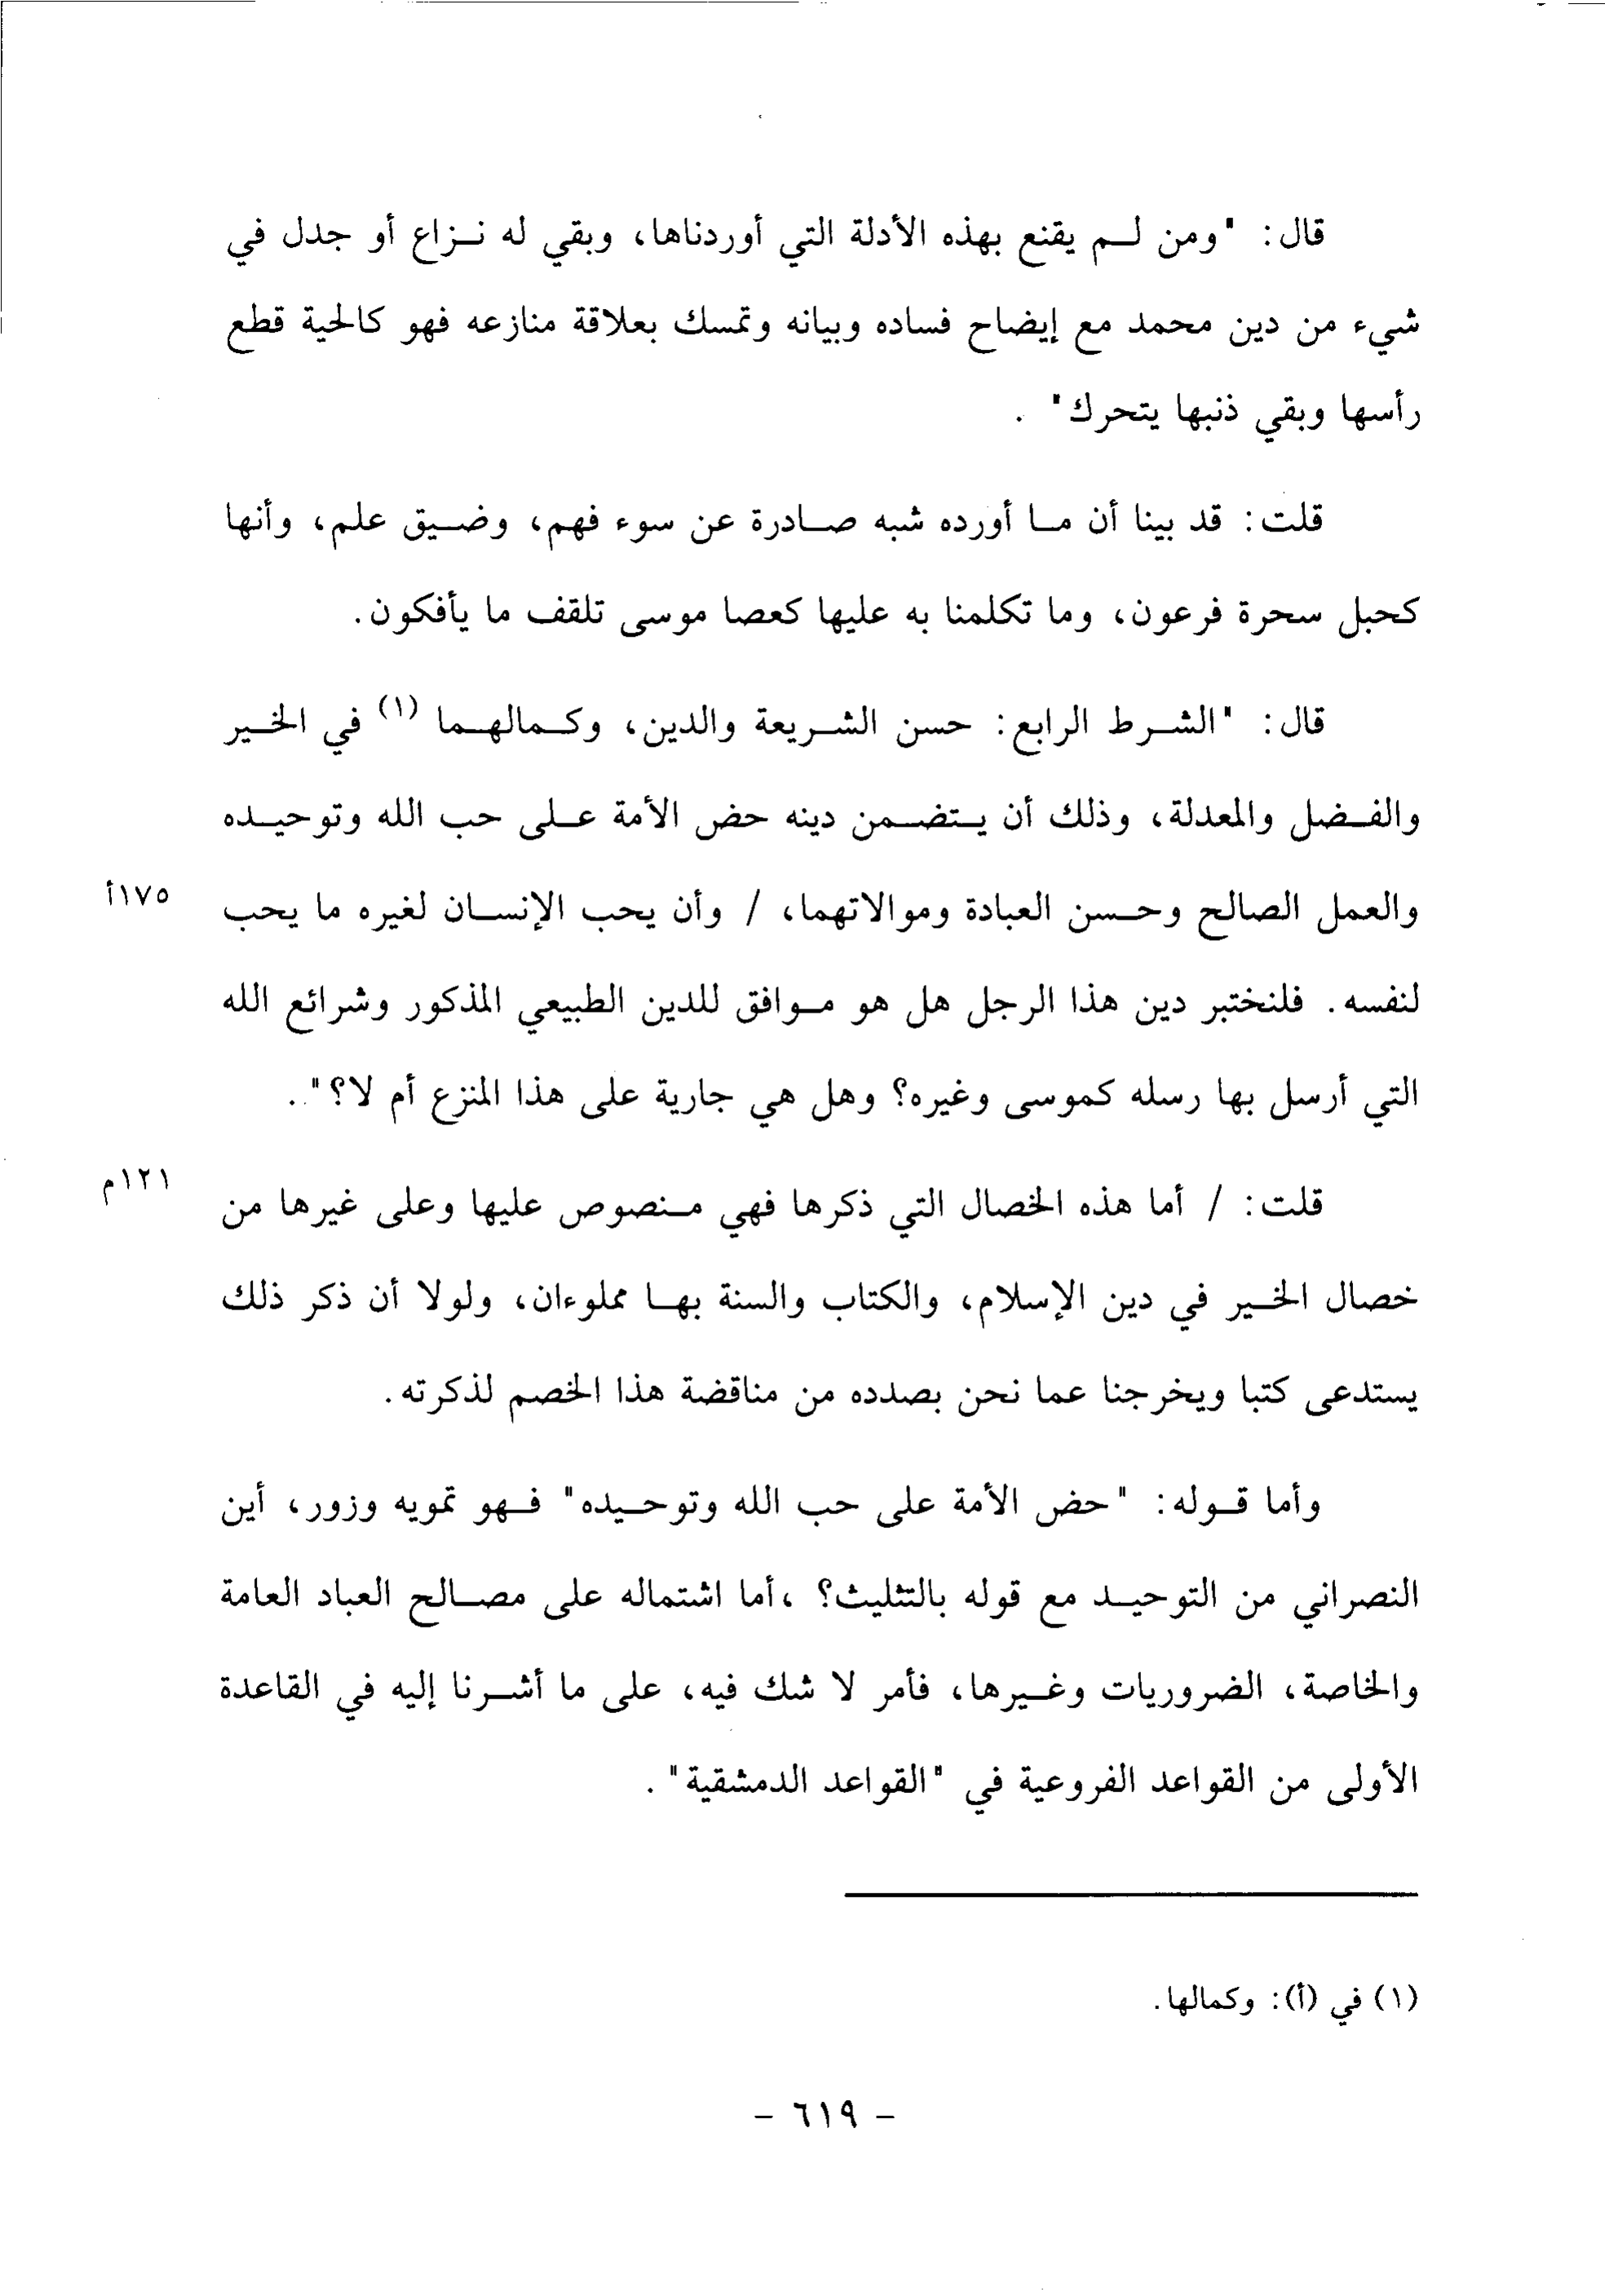 قال: "ومن لم يقنع بهذه الأدلة التي أوردناها، وبقي له نزاع أو جدل في
شيء من دين محمد مع إيضاح فساده وبيانه وتمسك بعلاقة منازعه فهو كالحية قطع
رأسها وبقي ذنبها يتحرك" .
قلت: قد بينا أن ما أورده شبه صادرة عن سوء فهم، وضيق علم، وأنها
كحبل سحرة فرعون، وما تكلمنا به عليها كعصا موسى تلقف ما يأفكون.
قال: "الشرط الرابع: حسن الشريعة والدين، وكمالهما (١) في الخير
والفضل والمعدلة، وذلك أن يتضمن دينه حض الأمة على حب الله وتوحيده
والعمل الصالح وحسن العبادة وموالاتهما، / وأن يحب الإنسان لغيره ما يحب ١٧٥أ
لنفسه. فلنختبر دين هذا الرجل هل هو موافق للدين الطبيعي المذكور وشرائع الله
التي أرسل بها رسله كموسى وغيره؟ وهل هي جارية على هذا المنزع أم لا؟"..
قلت: / أما هذه الخصال التي ذكرها فهي منصوص عليها وعلى غيرها من ١٢١م
خصال الخير في دين الإسلام، والكتاب والسنة بها مملوءان، ولولا أن ذكر ذلك
يستدعى كتبا ويخرجنا عما نحن بصدده من مناقضة هذا الخصم لذكرته.
وأما قوله: "حض الأمة على حب الله وتوحيده" فهو تمويه وزور، أين
النصراني من التوحيد مع قوله بالتثليث؟ ،أما اشتماله على مصالح العباد العامة
والخاصة، الضروريات وغيرها، فأمر لا شك فيه، على ما أشرنا إليه في القاعدة
الأولى من القواعد الفروعية في "القواعد الدمشقية" .
(١) في (أ): وكمالها.
- ٦١٩ -